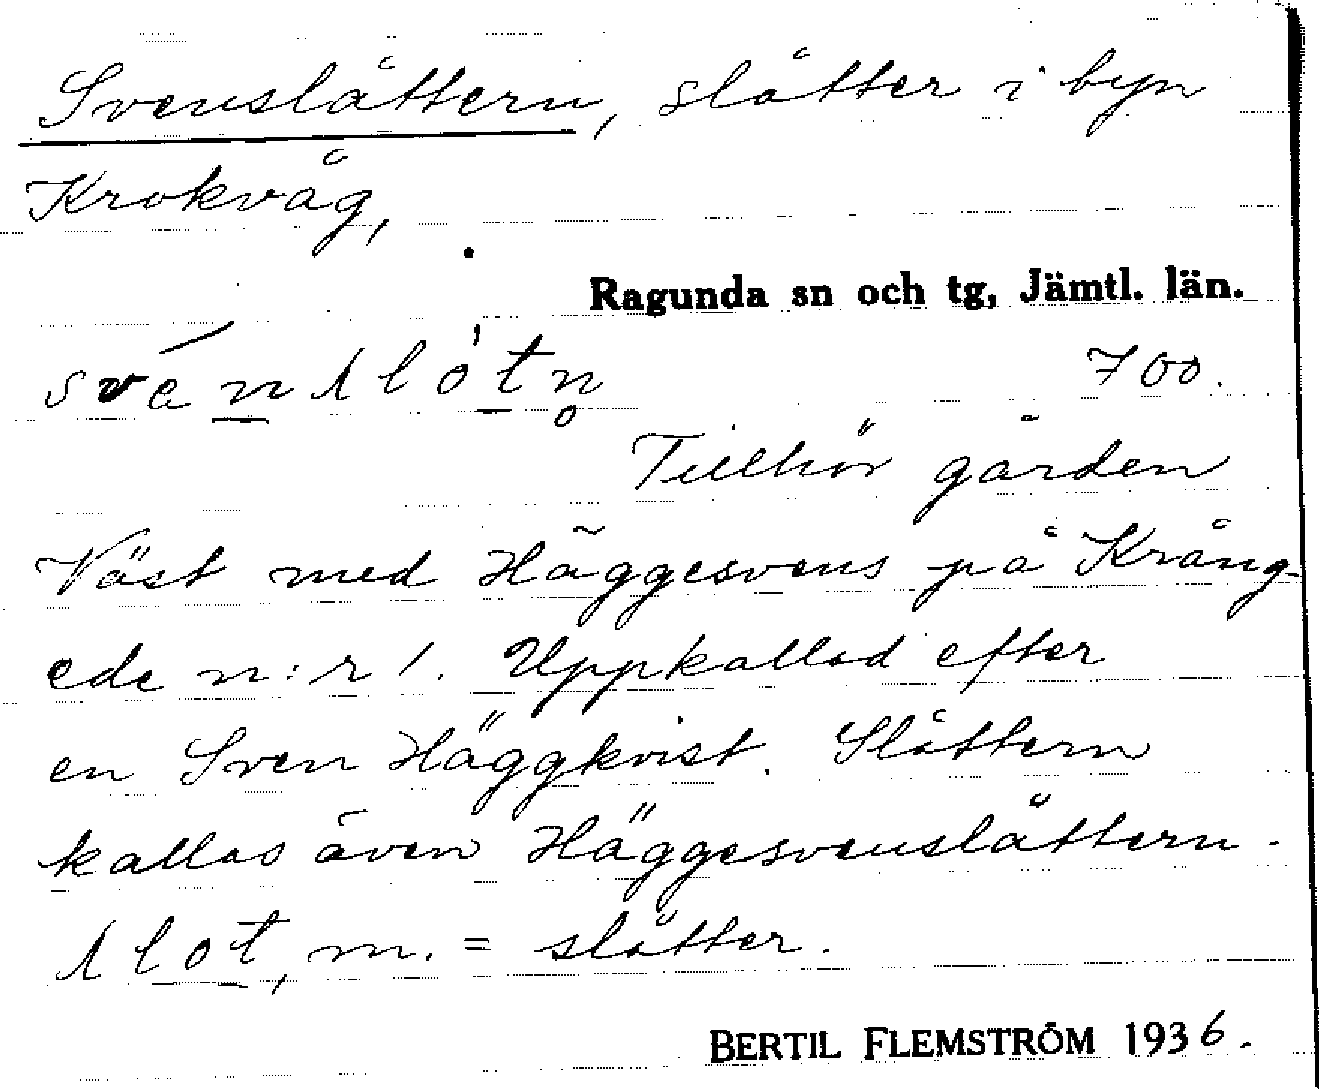 Svenslåttern, slåtter i byn
Krokvåg,
Ragunda sn och tg, Jämtl. län.
700.
Tillhör gården
Väst med Häggesvens på Kräng-
ede n:r 1. Uppkallad efter
en Sven Häggkvist. Slåttern
kallas även Häggesvenslåttern.
m. = slåtter.
BERTIL FLEMSTRÖM 1936.